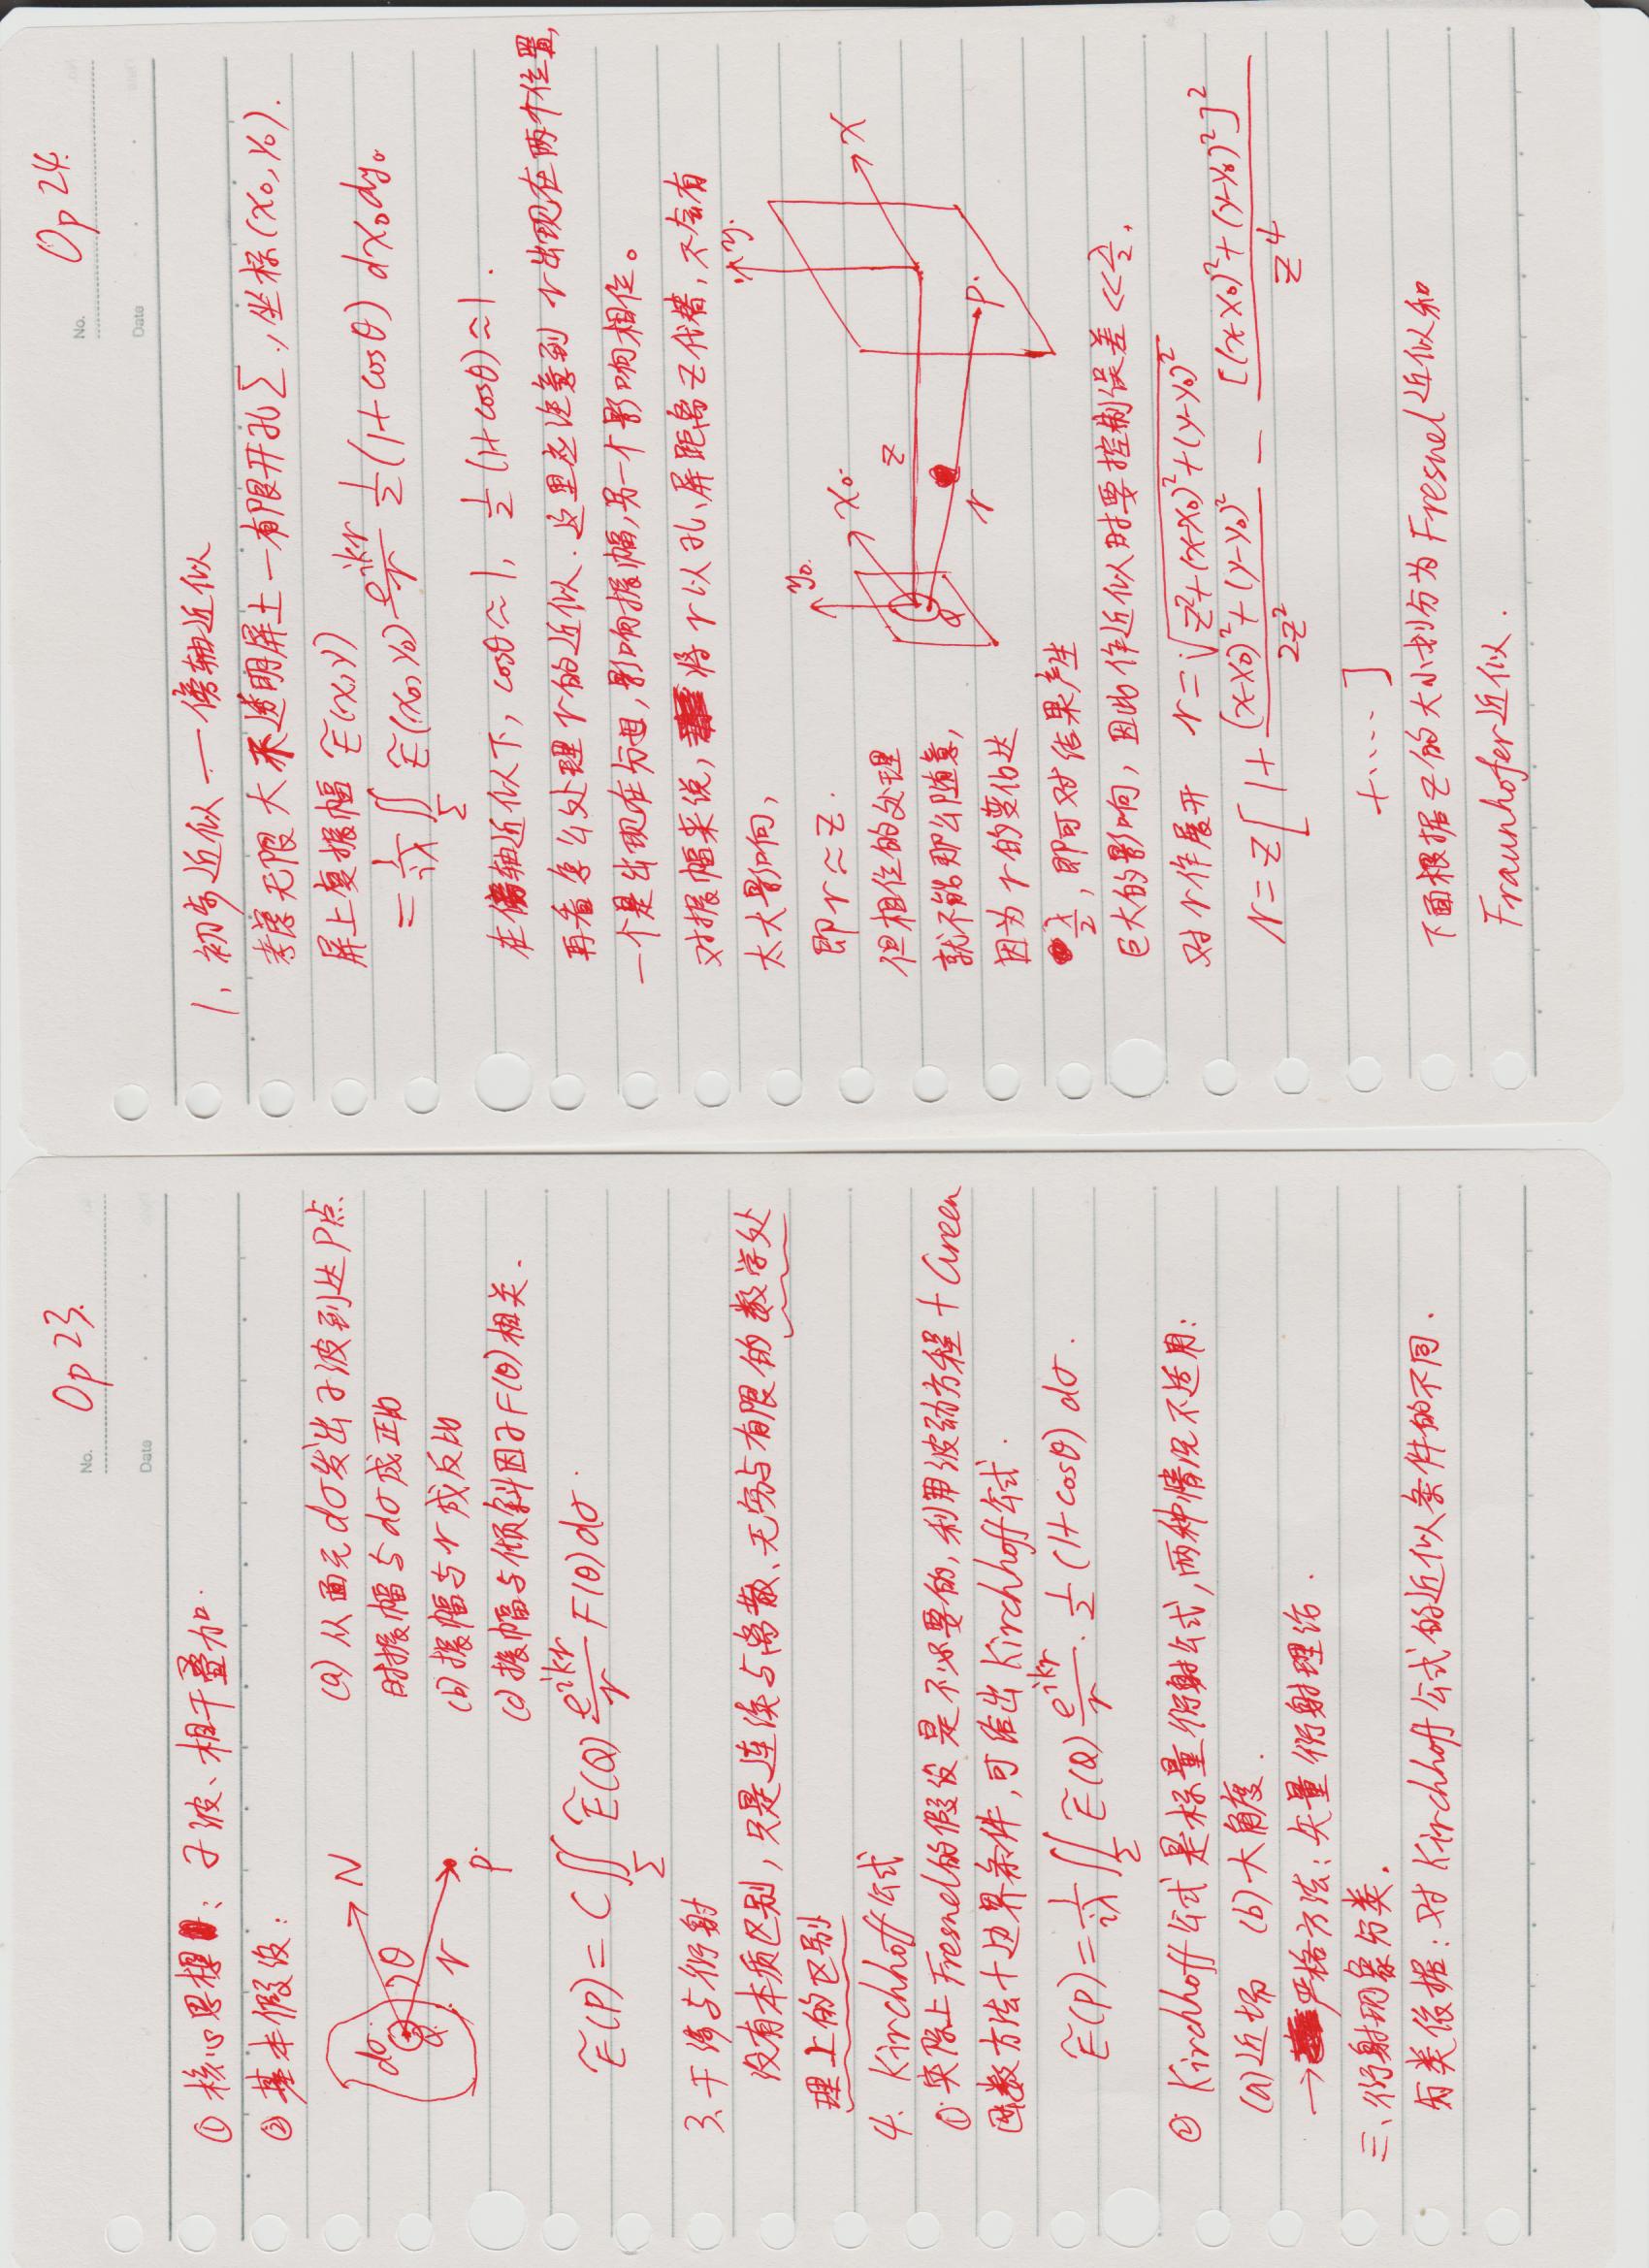 No. Op 23.
Date
① 核心思想：子波、相干叠加.
② 基本假设：
dσ
Q
N
θ
r
P.
(a) 从面元dσ发出子波到达P点
时振幅与dσ成正比
(b) 振幅与r成反比
(c) 振幅与倾斜因子F(θ)相关.
Ẽ(P) = C ∬_Σ Ẽ(Q) e^{ikr}/r F(θ) dσ.
3、干涉与衍射
没有本质区别，只是连续与离散、无穷与有限的数学处
理上的区别
4. Kirchhoff公式
① 实际上Fresnel的假设是不必要的, 利用波动方程+Green
函数方法+边界条件, 可给出Kirchhoff公式.
Ẽ(P) = 1/(iλ) ∬_Σ Ẽ(Q) e^{ikr}/r · 1/2 (1+cosθ) dσ.
② Kirchhoff公式是标量衍射公式, 两种情况不适用：
(a) 近场 (b) 大角度.
→ 严格方法：矢量衍射理论.
三、衍射现象分类.
分类依据：对Kirchhoff公式的近似条件的不同.
No. Op 24.
Date
1. 初步近似 — 傍轴近似
考虑无限大不透明屏上一有限开孔Σ, 坐标(x₀, y₀).
屏上复振幅 Ẽ(x, y)
= 1/(iλ) ∬_Σ Ẽ(x₀, y₀) e^{ikr}/r 1/2 (1+cosθ) dx₀dy₀
在傍轴近似下, cosθ≈1, 1/2 (1+cosθ)≈1.
再看怎么处理r的近似. 这里应注意到r出现在两个位置,
一个是出现在分母, 影响振幅, 另一个影响相位。
对振幅来说, 将r以孔、屏距离z代替, 不会有
太大影响,
即r≈z.
但相位的处理
就不能那么随意,
因为r的变化达
λ/2, 即可对结果产生
巨大的影响, 因此作近似时要控制误差<<λ/2.
y₀.
x₀.
Q
z
r
P.
y.
x
对r作展开 r = √(z²+(x-x₀)²+(y-y₀)²)
r = z[1 + ((x-x₀)²+(y-y₀)²)/(2z²) - [(x-x₀)²+(y-y₀)²]²/z⁴
+ ····· ]
下面根据z的大小划分为Fresnel近似和
Fraunhofer近似.